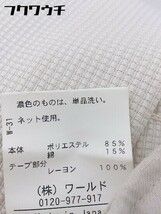 フクウロウチ
濃色のものは、単品洗い。
ネット使用。
W-31
本体 ポリエステル 85%
綿 15%
テープ部分 レーヨン 100%
(株) ワールド
0120-977-917